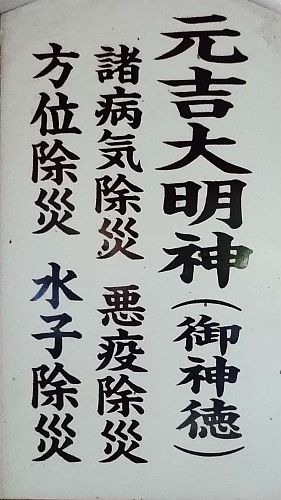 元吉大明神(御神徳)
諸病気除災 悪疫除災
方位除災 水子除災